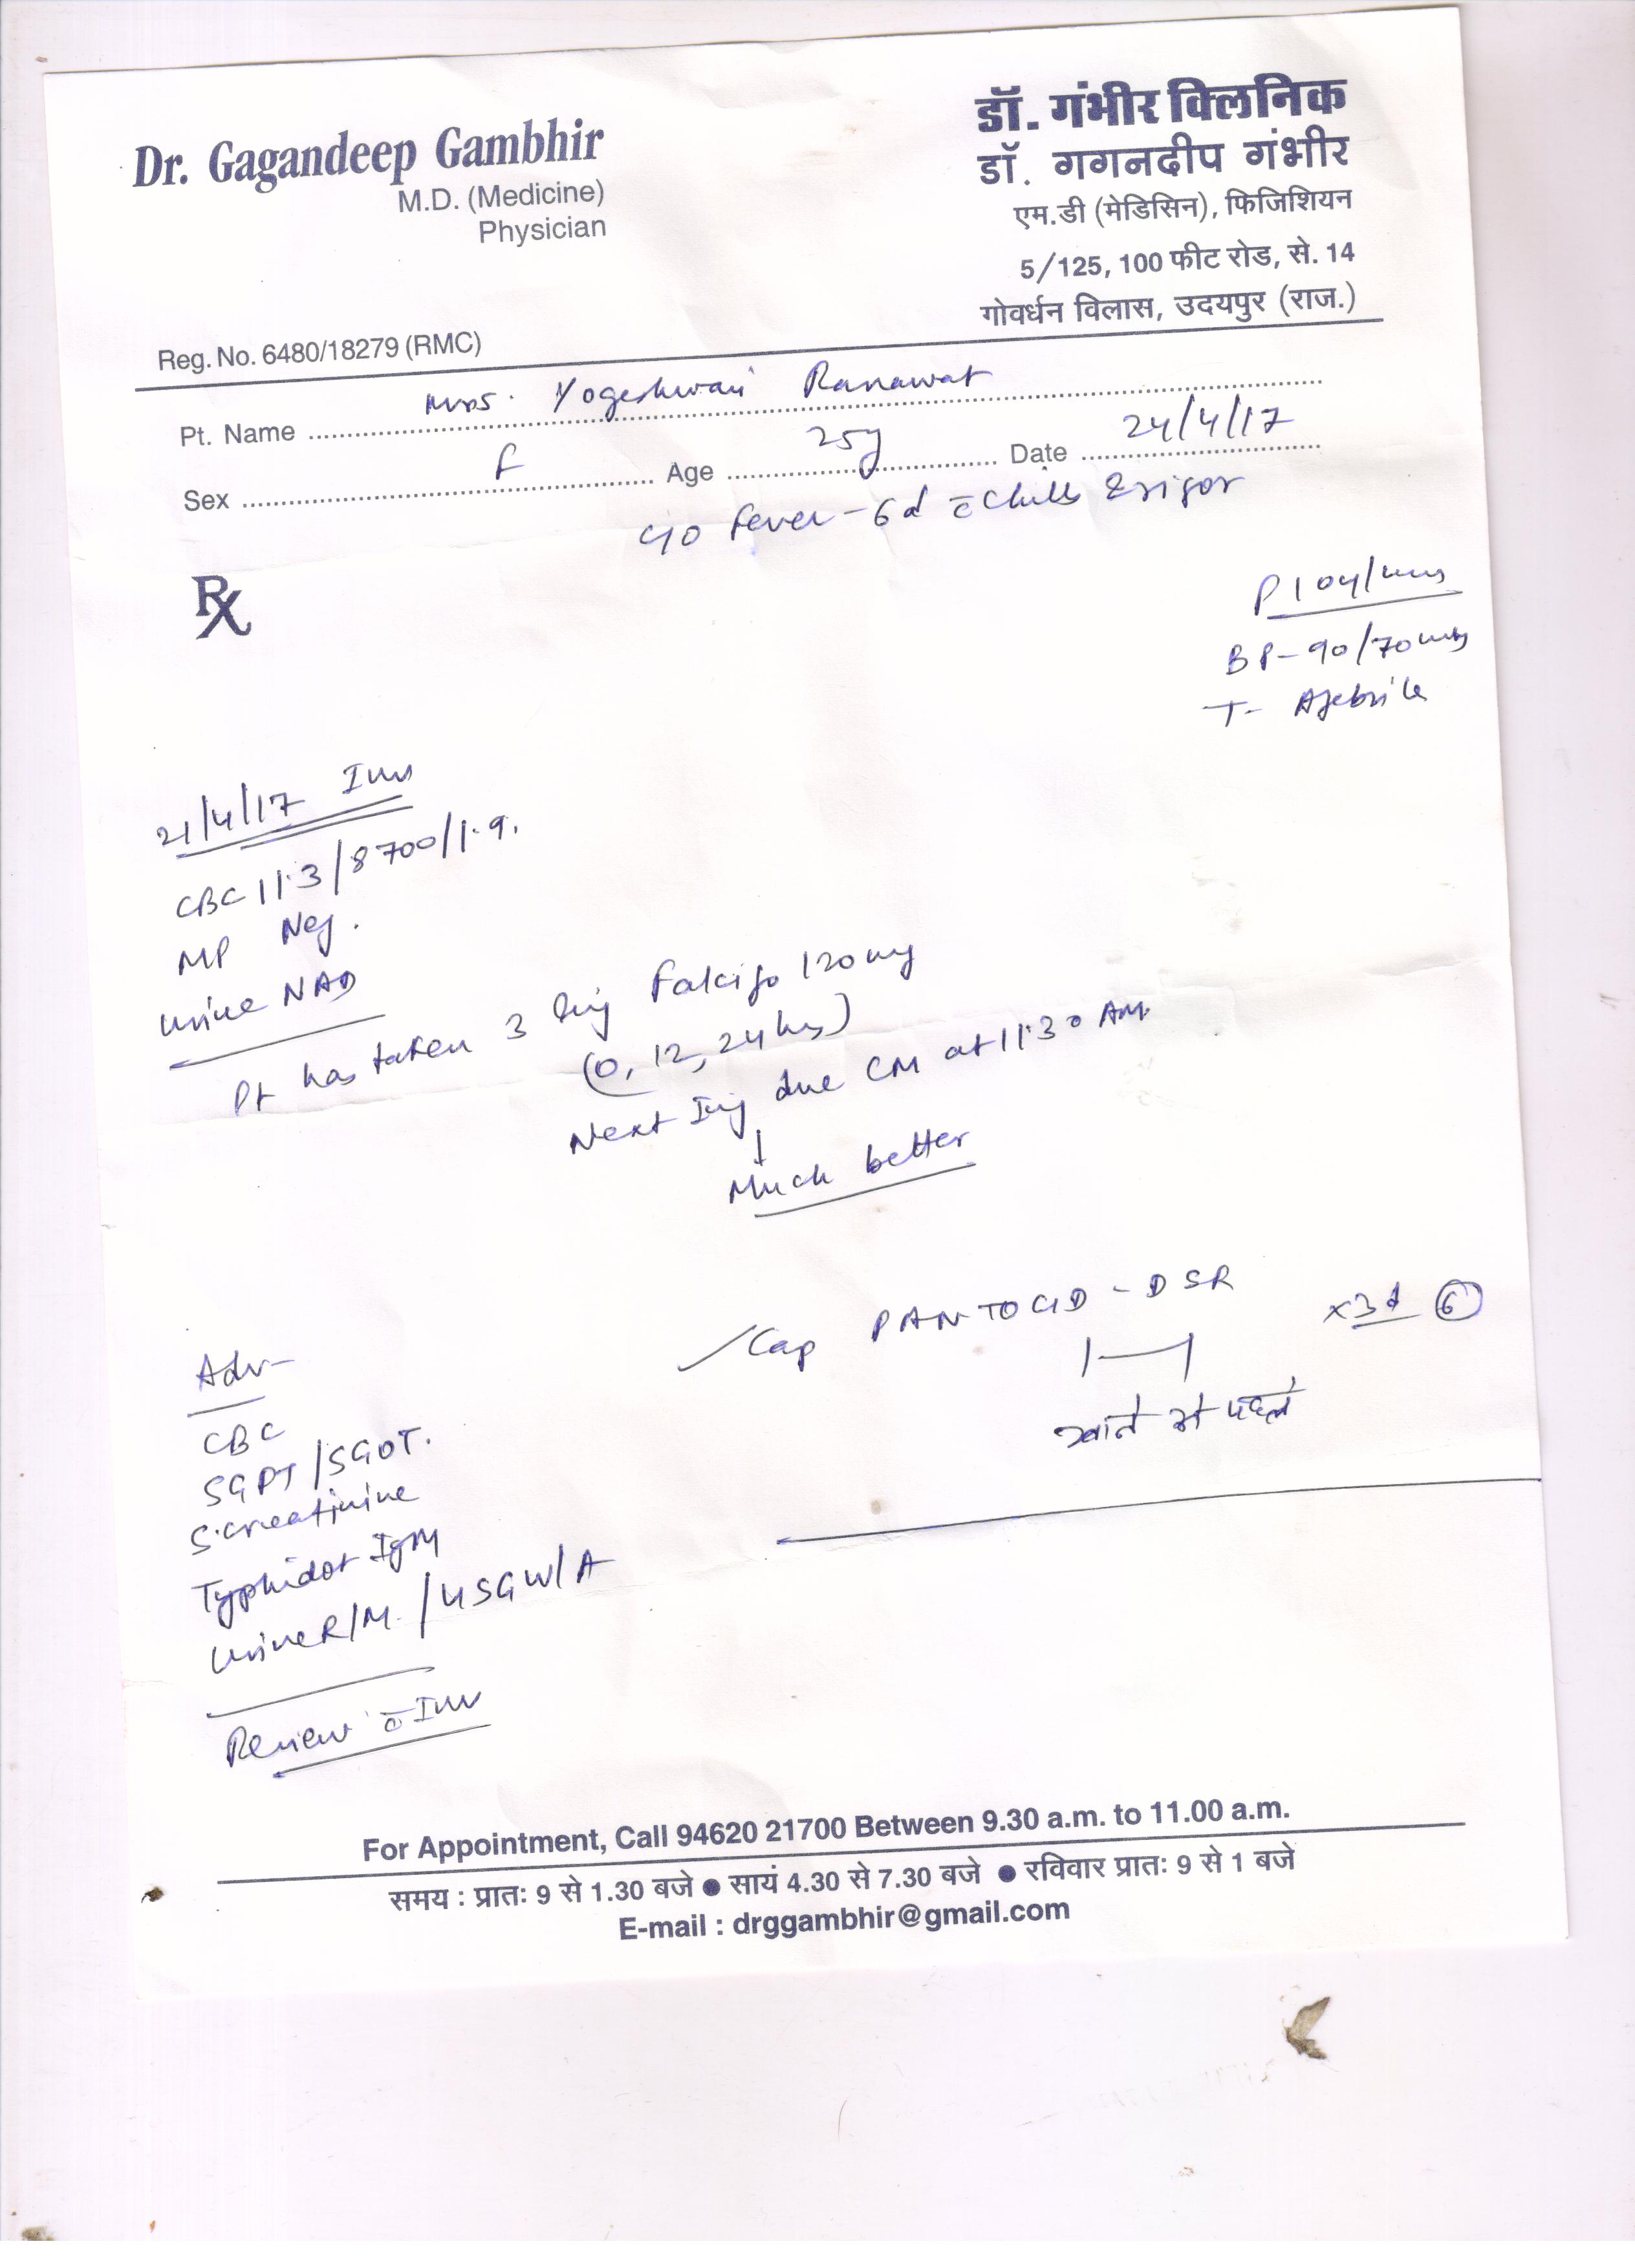 Dr. Gagandeep Gambhir
M.D. (Medicine)
Physician
Reg. No. 6480/18279 (RMC)
डॉ. गंभीर क्लिनिक
डॉ. गगनदीप गंभीर
एम.डी (मेडिसिन), फिजिशियन
5/125, 100 फीट रोड, से. 14
गोवर्धन विलास, उदयपुर (राज.)
Pt. Name Mrs. Yogeshwari Ranawat
Sex F Age 25y Date 24/4/17
c/o fever - 6d c̄ chills & rigor
Rx
P 104/min
BP - 90/70 mmHg
T - Afebrile
21/4/17 Inv
CBC 11.3/8700/1.9.
MP Neg.
Urine NAD
Pt has taken 3 Inj Falcigo 120mg
(0, 12, 24 hrs)
Next Inj due CM at 11.30 AM.
↓
Much better
Cap PANTOCID - DSR x3d 6
1—1
खाने से पहले
Adv-
CBC
SGPT/SGOT.
S.creatinine
Typhidot IgM
Urine R/M. / USG W/A
Review c̄ Inv
For Appointment, Call 94620 21700 Between 9.30 a.m. to 11.00 a.m.
समय : प्रातः 9 से 1.30 बजे ● सायं 4.30 से 7.30 बजे ● रविवार प्रातः 9 से 1 बजे
E-mail : drggambhir@gmail.com